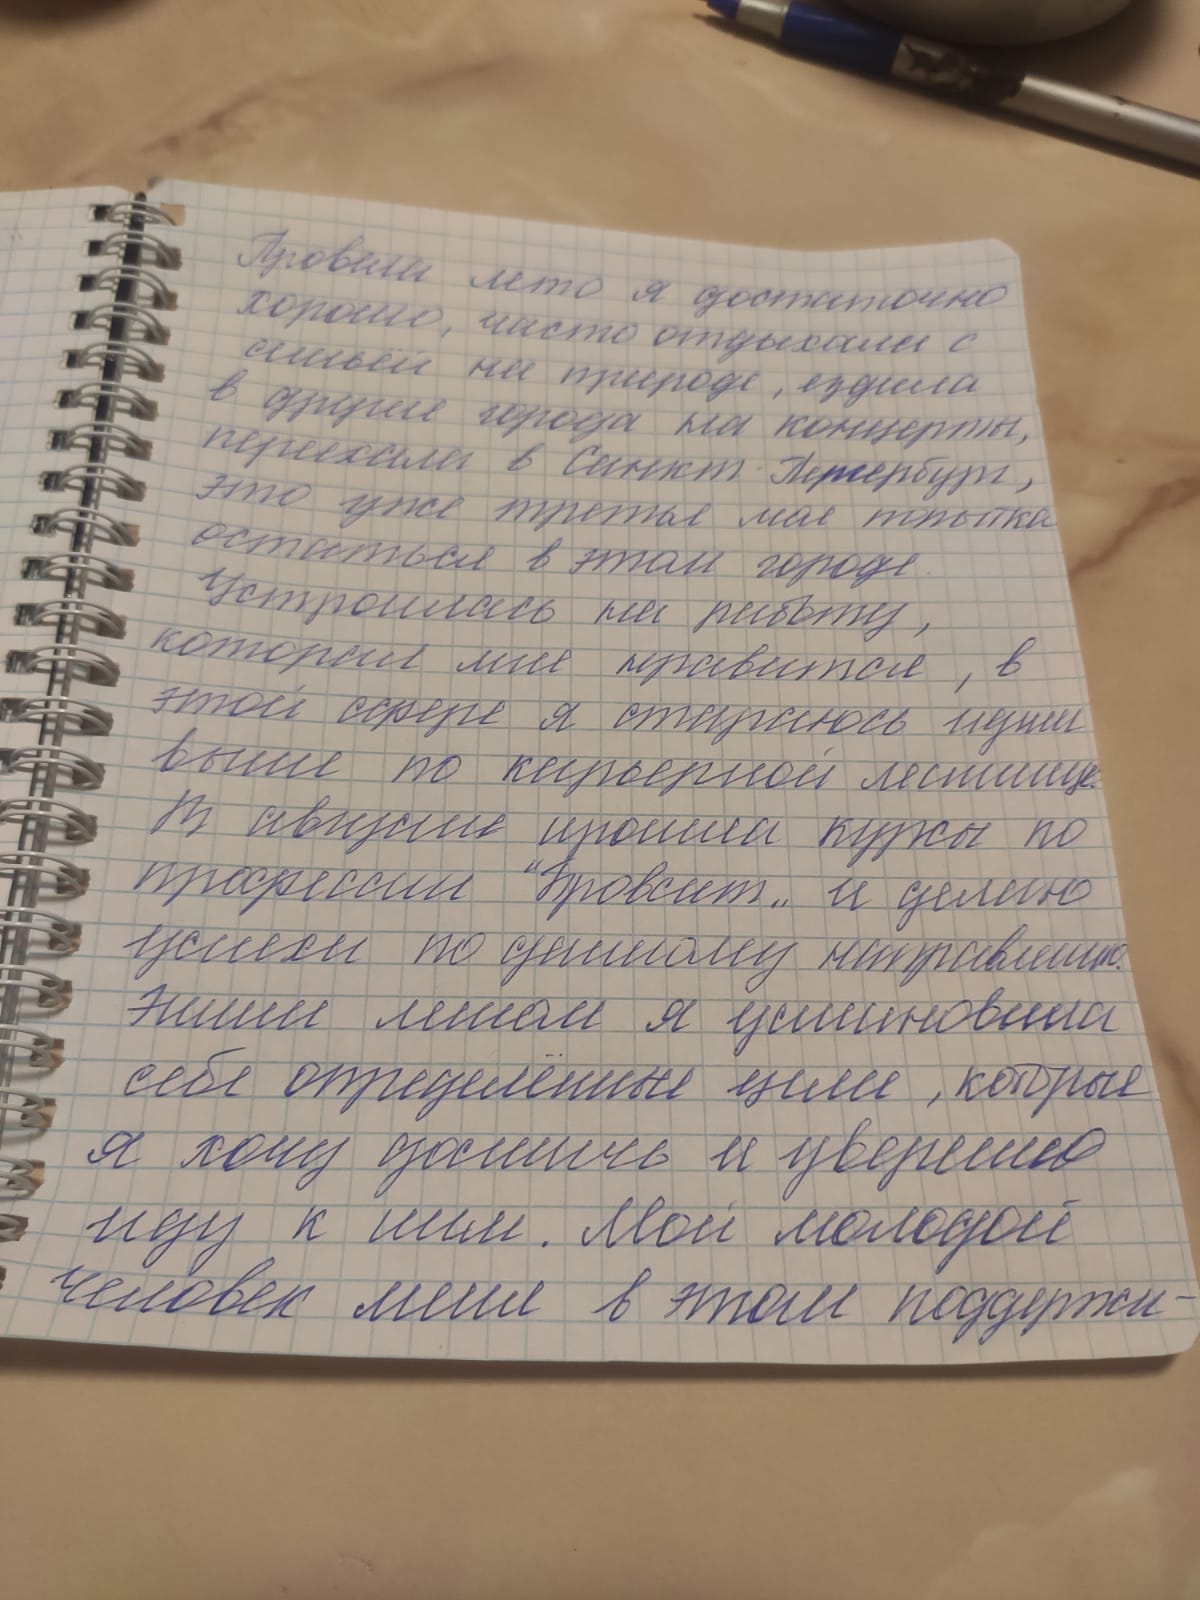 Провела лето я достаточно
хорошо, часто отдыхали с
семьёй на природе, ездила
в другие города на концерты,
переехала в Санкт-Петербург,
это уже третья моя попытка
остаться в этом городе.
Устроилась на работу,
которая мне нравится, в
этой сфере я стараюсь идти
выше по карьерной лестнице.
В августе прошла курсы по
профессии "Бровист" и делаю
успехи по данному направлению.
Этим летом я установила
себе определённые цели, которые
я хочу достичь и уверенно
иду к ним. Мой молодой
человек меня в этом поддержи-